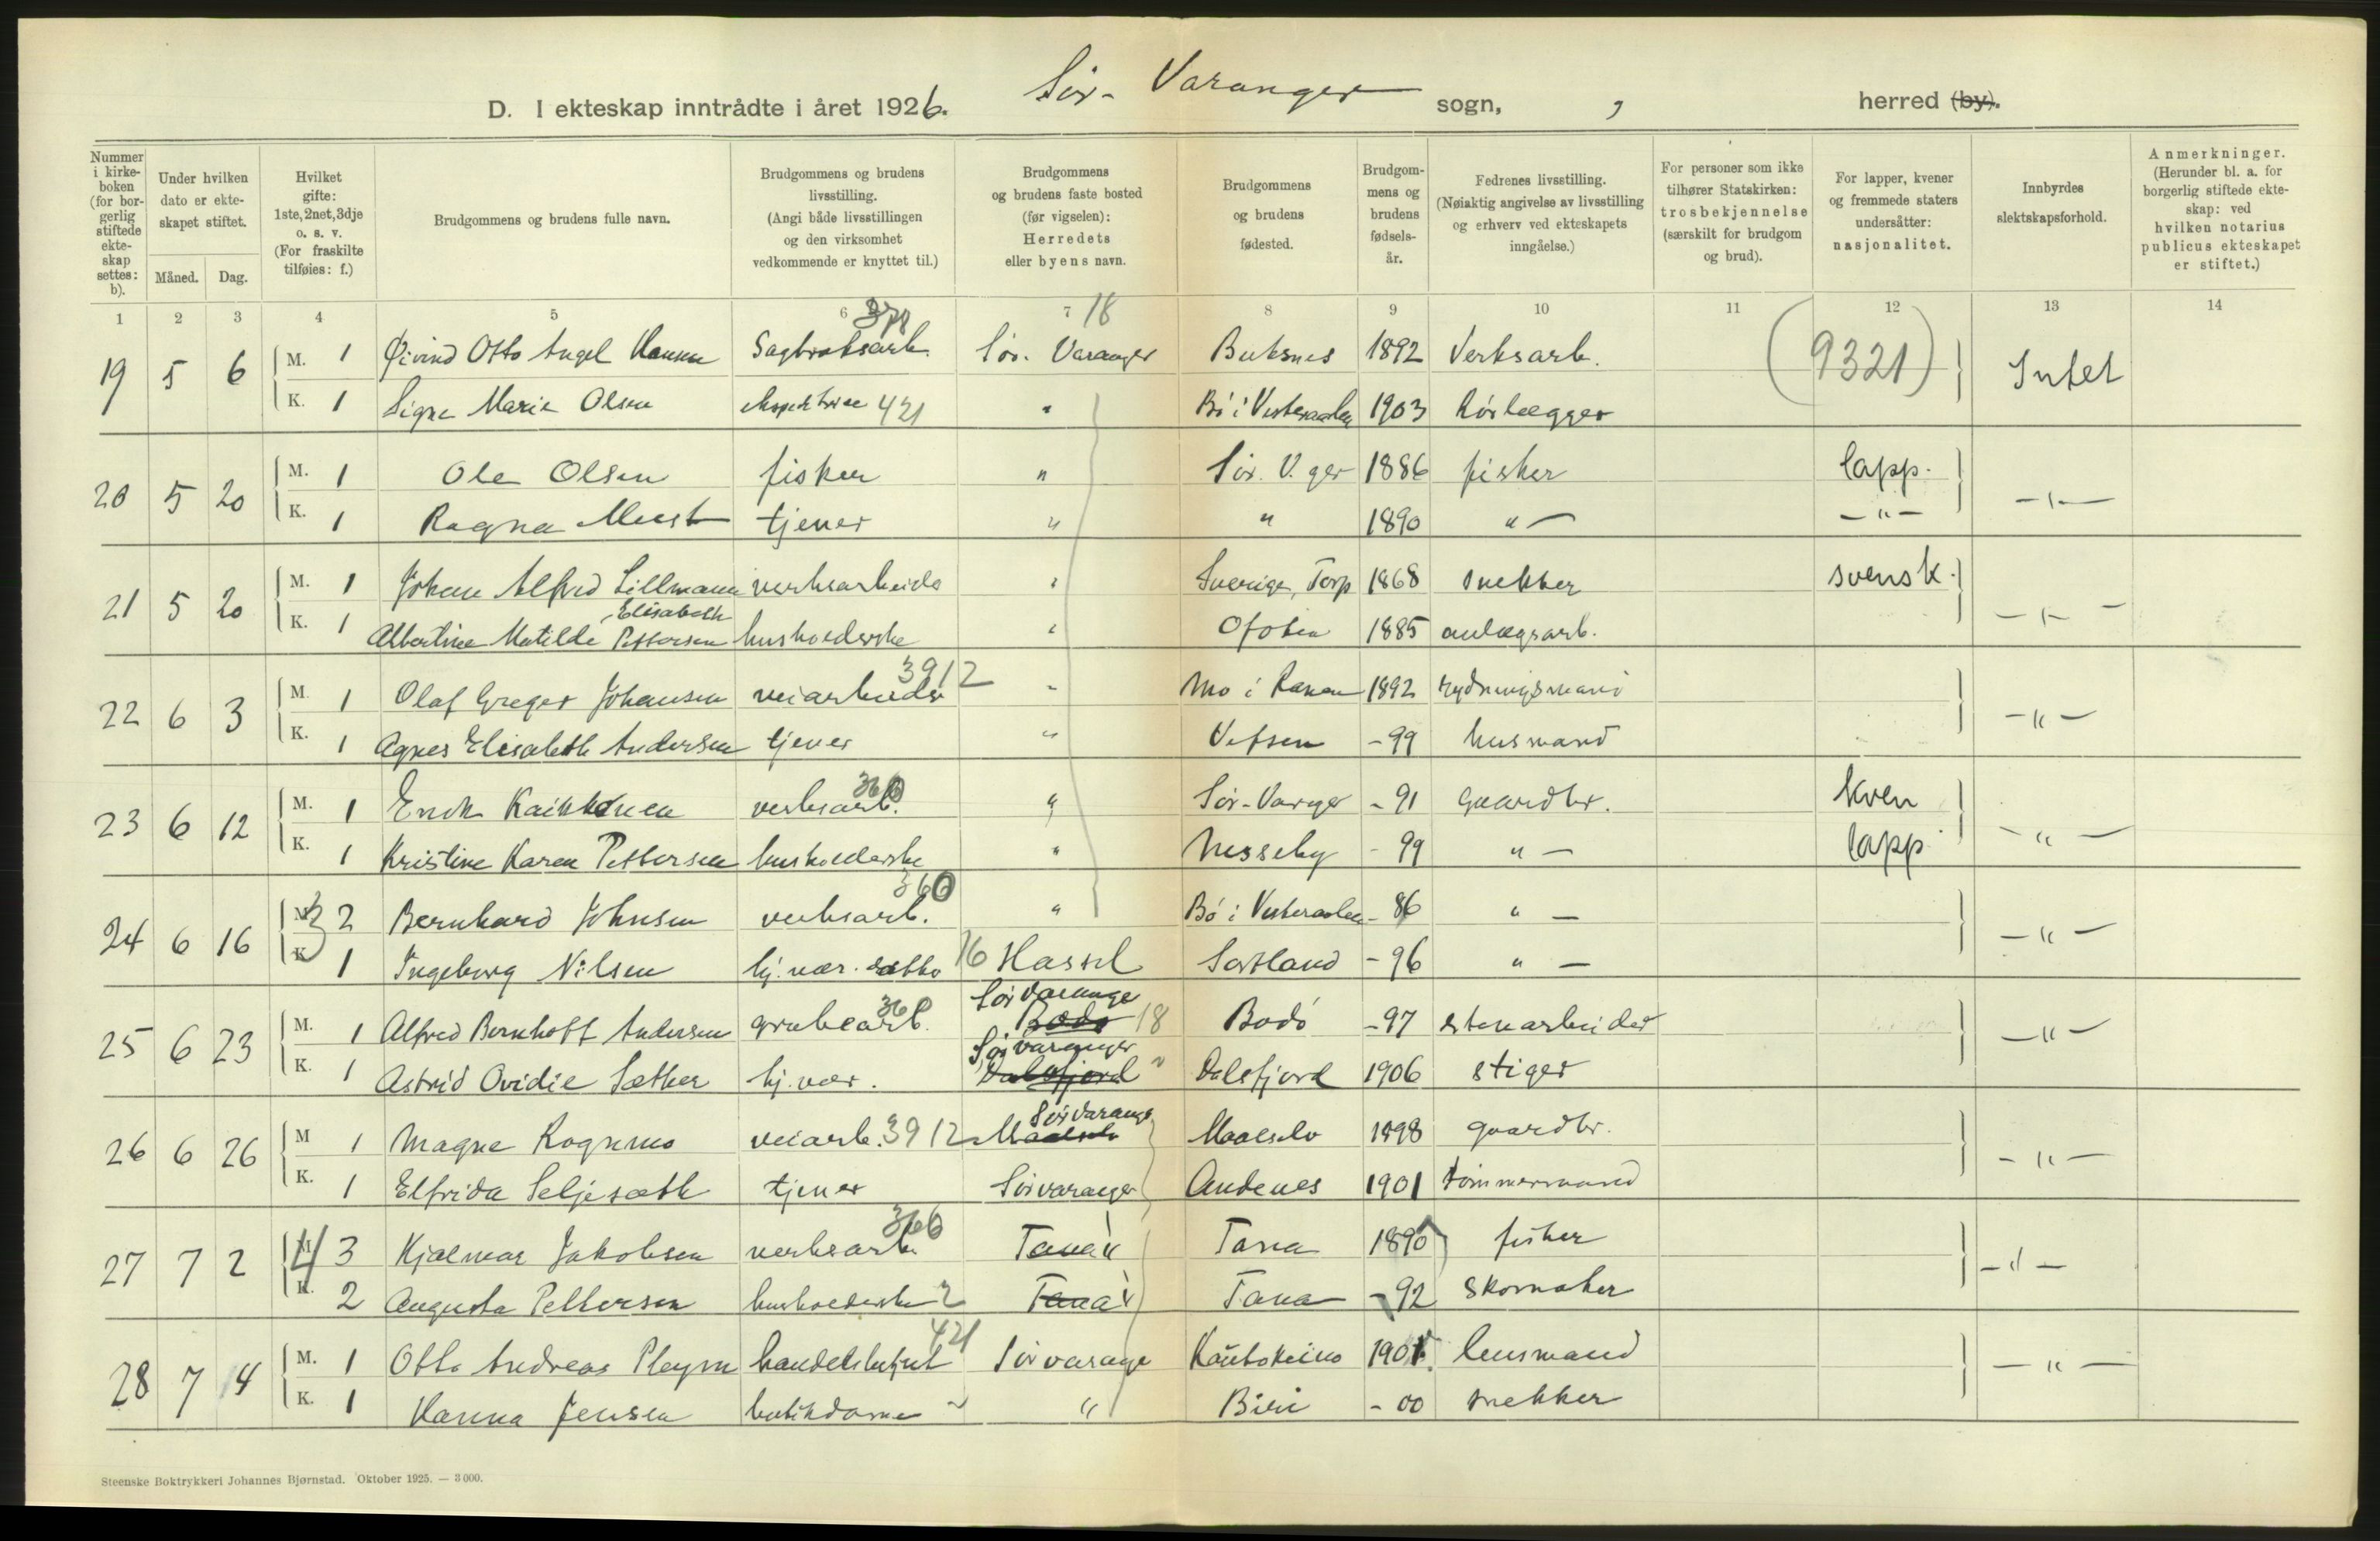 D. I ekteskap inntrådte i året 1926. Sør-Varanger sogn, , herred (by).
Nummer i kirkeboken (for borgerlig stiftede ekteskap settes: b).
Under hvilken dato er ekteskapet stiftet. Måned. Dag.
Hvilket gifte: 1ste, 2net, 3dje o. s. v. (For fraskilte tilføies: f.)
Brudgommens og brudens fulle navn.
Brudgommens og brudens livsstilling. (Angi både livsstillingen og den virksomhet vedkommende er knyttet til.)
Brudgommens og brudens faste bosted (før vigselen): Herredets eller byens navn.
Brudgommens og brudens fødested.
Brudgommens og brudens fødselsår.
Fedrenes livsstilling. (Nøiaktig angivelse av livsstilling og erhverv ved ekteskapets inngåelse.)
For personer som ikke tilhører Statskirken: trosbekjennelse (særskilt for brudgom og brud).
For lapper, kvener og fremmede staters undersåtter: nasjonalitet.
Innbyrdes slektskapsforhold.
Anmerkninger. (Herunder bl. a. for borgerlig stiftede ekteskap: ved hvilken notarius publicus ekteskapet er stiftet.)
1 2 3 4 5 6 7 8 9 10 11 12 13 14
18
19 5 6 M. 1 Øivind Otto Angel Hanssen Sagbruksarb. Sør. Varanger Buksnes 1892 Verksarb. (9321) Intet
K. 1 Signe Marie Olsen ekspeditrise 421 " Bø i Vesteraalen 1903 Rørlægger
20 5 20 M. 1 Ole Olsen fisker " Sør. V.ger 1886 fisker lapp. -"-
K. 1 Ragna Meest tjener " " 1890 " - -"-
21 5 20 M. 1 Johan Alfred Lillmann verksarbeider " Sverige, Torp 1868 snekker svensk. -"-
K. 1 Albertine Matilde Elisabeth Pettersen husholderske " Ofoten 1885 anlægsarb.
22 6 3 M. 1 Olaf Greger Johansen veiarbeider 3912 " Mo i Ranen 1892 rydningsmand -"-
K. 1 Agnes Elisabeth Andersen tjener " Vefsen -99 husmand
23 6 12 M. 1 Erick Kaikkonen verksarb. 360 " Sør-Varger -91 gaardbr. kven -"-
K. 1 Kristine Karen Pettersen husholderske " Nesseby -99 " - lapp
24 6 16 M. 3 2 Bernhard Johnsen verksarb. 360 " Bø i Vesteraalen -86 " - -"-
K. 1 Ingeborg Nilsen hj. vær. 16 Hassel Sortland -96 " -
25 6 23 M. 1 Alfred Bernhoff Andersen grubearb. 360 Sør Varanger Bodø 18 Bodø -97 stenarbeider -"-
K. 1 Astrid Ovidie Sæther hj. vær. Sørvaranger Dalsfjord " Dalsfjord 1906 stiger
26 6 26 M 1 Magne Rognmo veiarb. 3912 Sørvarang Maalselv Maalselv 1898 gaardbr. -"-
K. 1 Elfrida Seljesæth tjener Sørvaranger Andenes 1901 tømmermand
27 7 2 M 4 3 Hjalmar Jakobsen verksarb. 366 Tana " Tana 1890 fisker -"-
K. 2 Augusta Pettersen husholderske Tana " Tana -92 skomaker
28 7 14 M. 1 Otto Andreas Pleym handelsbetjent 421 Sørvarange Kautokeino 1901 lensmand -"-
K. 1 Hanna Jensen butikdame " " Biri -00 snekker
Steenske Boktrykkeri Johannes Bjørnstad. Oktober 1925. — 3000.